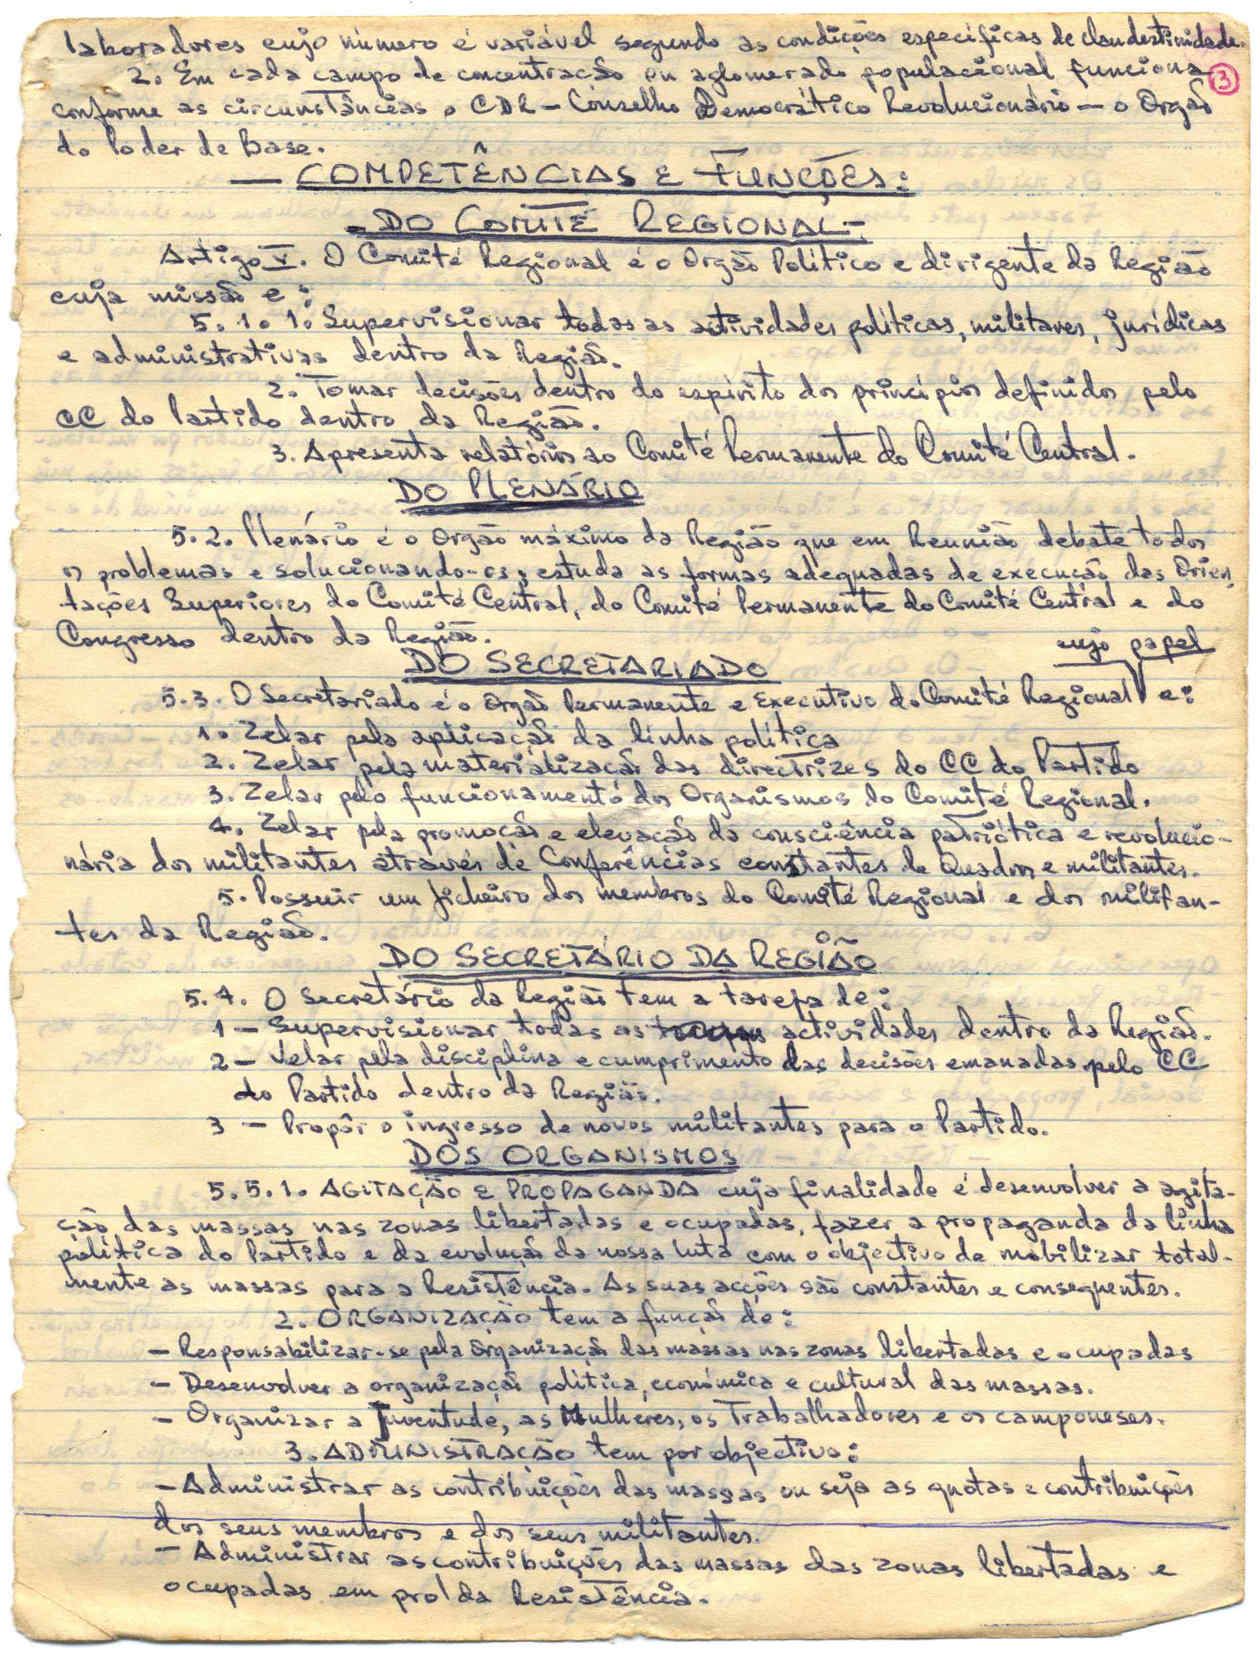 laboradores cujo número é variável segundo as condições específicas de clandestinidade.
2. Em cada campo de concentração ou aglomerado populacional funciona
3
conforme as circunstâncias o CDR - Conselho Democrático Revolucionário - o Orgão
do Poder de Base.
- COMPETÊNCIAS E FUNÇÕES:
- DO COMITÉ REGIONAL -
Artigo V. O Comité Regional é o Orgão Político e dirigente da Região
cuja missão e:
5.1.1. Supervisionar todas as actividades políticas, militares, jurídicas
e administrativas dentro da Região.
2. Tomar decisões dentro do espírito dos princípios definidos pelo
CC do Partido dentro da Região.
3. Apresenta relatórios ao Comité Permanente do Comité Central.
DO PLENÁRIO
5.2. Plenário é o Orgão máximo da Região que em Reunião debate todos
os problemas e solucionando-os, estuda as formas adequadas de execução das Orien
tações Superiores do Comité Central, do Comité Permanente do Comité Central e do
Congresso dentro da Região.
cujo papel
DO SECRETARIADO
5.3. O Secretariado é o Orgão Permanente e Executivo do Comité Regional e:
1. Zelar pela aplicação da linha política
2. Zelar pela materialização das directrizes do CC do Partido
3. Zelar pelo funcionamento dos Organismos do Comité Regional.
4. Zelar pela promoção e elevação da consciência patriótica e revolucio-
nária dos militantes através de Conferências constantes de Quadros e militantes.
5. Possuir um ficheiro dos membros do Comité Regional e dos militan-
tes da Região.
DO SECRETÁRIO DA REGIÃO
5.4. O Secretário da Região tem a tarefa de:
1 - Supervisionar todas as actividades dentro da Região.
2 - Velar pela disciplina e cumprimento das decisões emanadas pelo CC
do Partido dentro da Região.
3 - Propôr o ingresso de novos militantes para o Partido.
DOS ORGANISMOS
5.5.1. AGITAÇÃO E PROPAGANDA cuja finalidade é desenvolver a agita-
ção das massas nas zonas libertadas e ocupadas, fazer a propaganda da linha
política do Partido e da evolução da nossa luta com o objectivo de mobilizar total-
mente as massas para a Resistência. As suas acções são constantes e consequentes.
2. ORGANIZAÇÃO tem a função de:
- Responsabilizar-se pela Organização das massas nas zonas libertadas e ocupadas
- Desenvolver a organização política, económica e cultural das massas.
- Organizar a Juventude, as Mulheres, os Trabalhadores e os camponeses.
3. ADMINISTRAÇÃO tem por objectivo:
- Administrar as contribuições das massas ou seja as quotas e contribuições
dos seus membros e dos seus militantes.
- Administrar as contribuições das massas das zonas libertadas e
ocupadas em prol da Resistência.